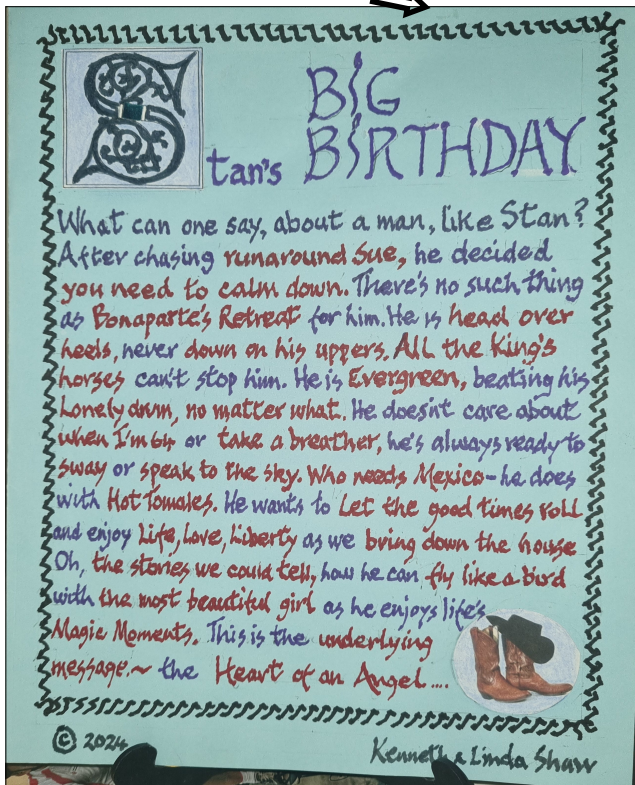 BIG
Stan's BIRTHDAY
What can one say, about a man, like Stan?
After chasing runaround Sue, he decided
you need to calm down. There's no such thing
as Bonaparte's Retreat for him. He is head over
heels, never down on his uppers. All the King's
horses can't stop him. He is Evergreen, beating his
Lonely drum, no matter what. He doesn't care about
when I'm 64 or take a breather, he's always ready to
sway or speak to the sky. Who needs Mexico - he does
with Hot Tomales. He wants to Let the good times roll
and enjoy Life, Love, Liberty as we bring down the house
Oh, the stories we could tell, how he can fly like a bird
with the most beautiful girl as he enjoys life's
Magic Moments. This is the underlying
message.~ the Heart of an Angel....
© 2024 Kenneth & Linda Shaw